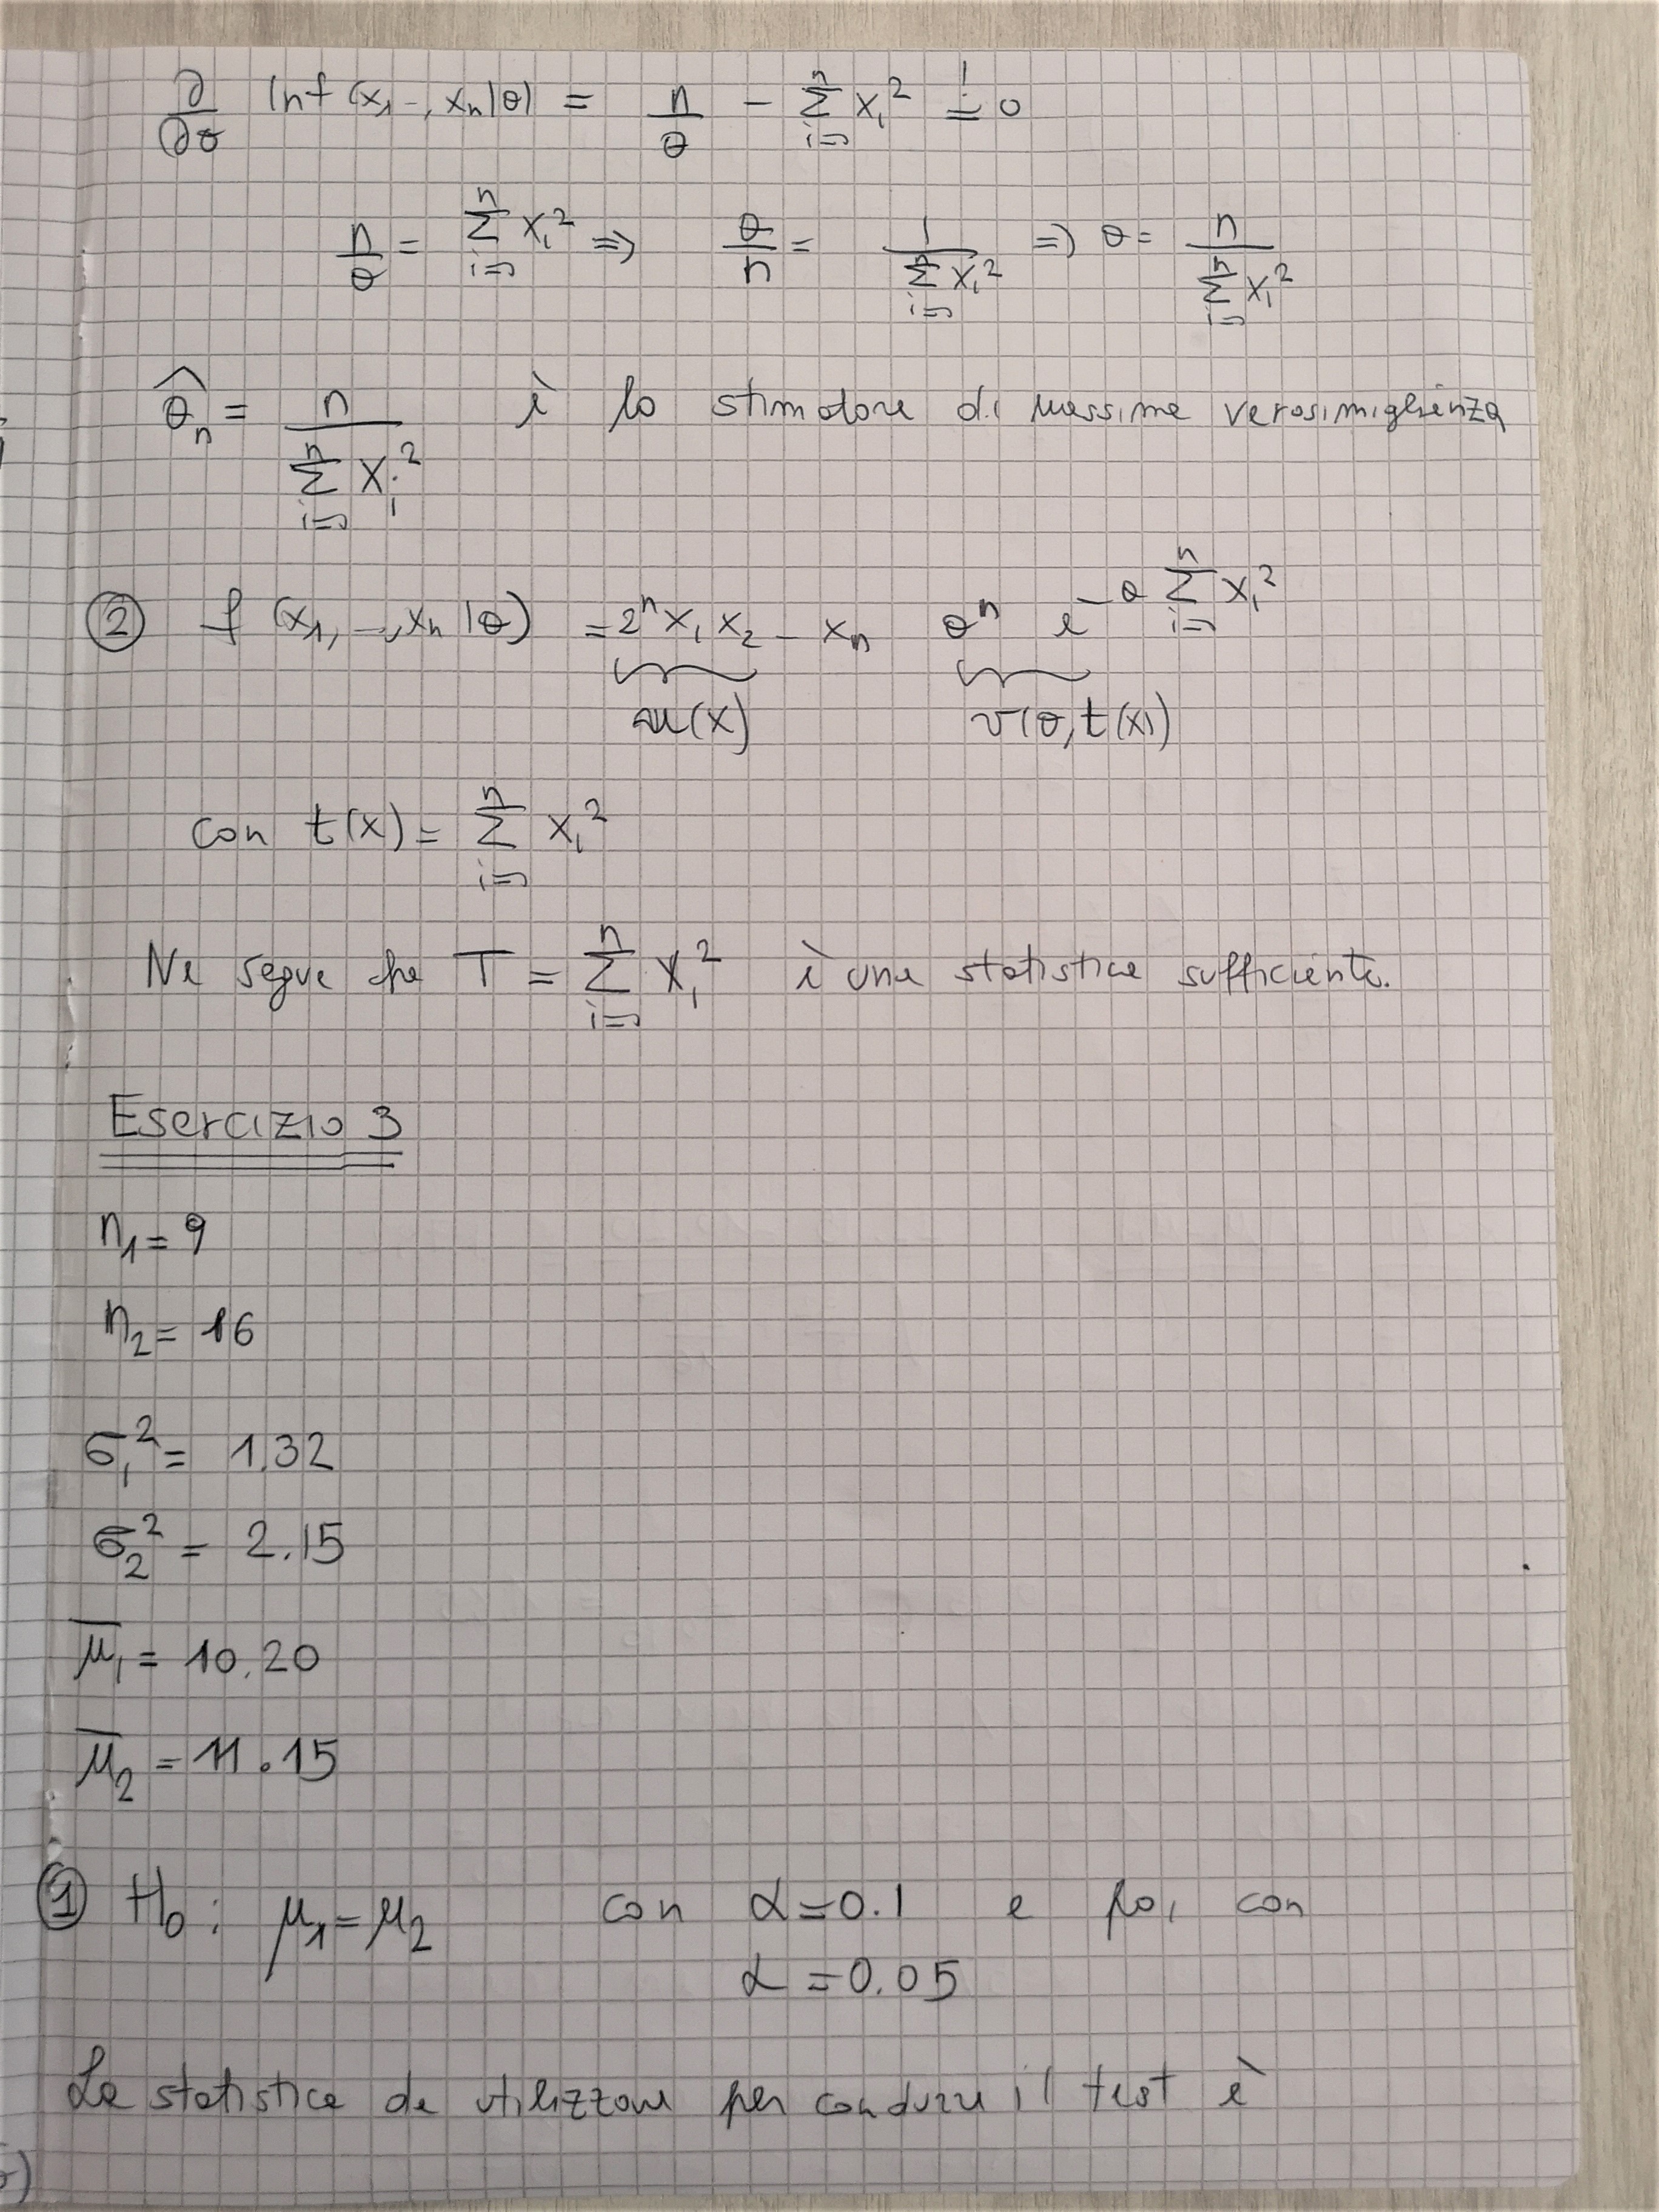 ∂/∂θ ln f (x₁ –, xₙ|θ) = n/θ – Σᵢ₌₁ⁿ xᵢ² != 0
n/θ = Σᵢ₌₁ⁿ xᵢ² => θ/n = 1/Σᵢ₌₁ⁿ xᵢ² => θ = n/Σᵢ₌₁ⁿ xᵢ²
θ̂ₙ = n/Σᵢ₌₁ⁿ Xᵢ² è lo stimatore di massima verosimiglianza
② f (x₁, –, xₙ |θ) = 2ⁿ x₁ x₂ – xₙ θⁿ e^(–θ Σᵢ₌₁ⁿ xᵢ²)
u(x) v(θ, t(x))
con t(x) = Σᵢ₌₁ⁿ xᵢ²
Ne segue che T = Σᵢ₌₁ⁿ Xᵢ² è una statistica sufficiente.
Esercizio 3
n₁ = 9
n₂ = 16
σ₁² = 1.32
σ₂² = 2.15
μ̅₁ = 10.20
μ̅₂ = 11.15
① H₀: μ₁ = μ₂ con α = 0.1 e poi con
α = 0.05
La statistica da utilizzare per condurre il test è